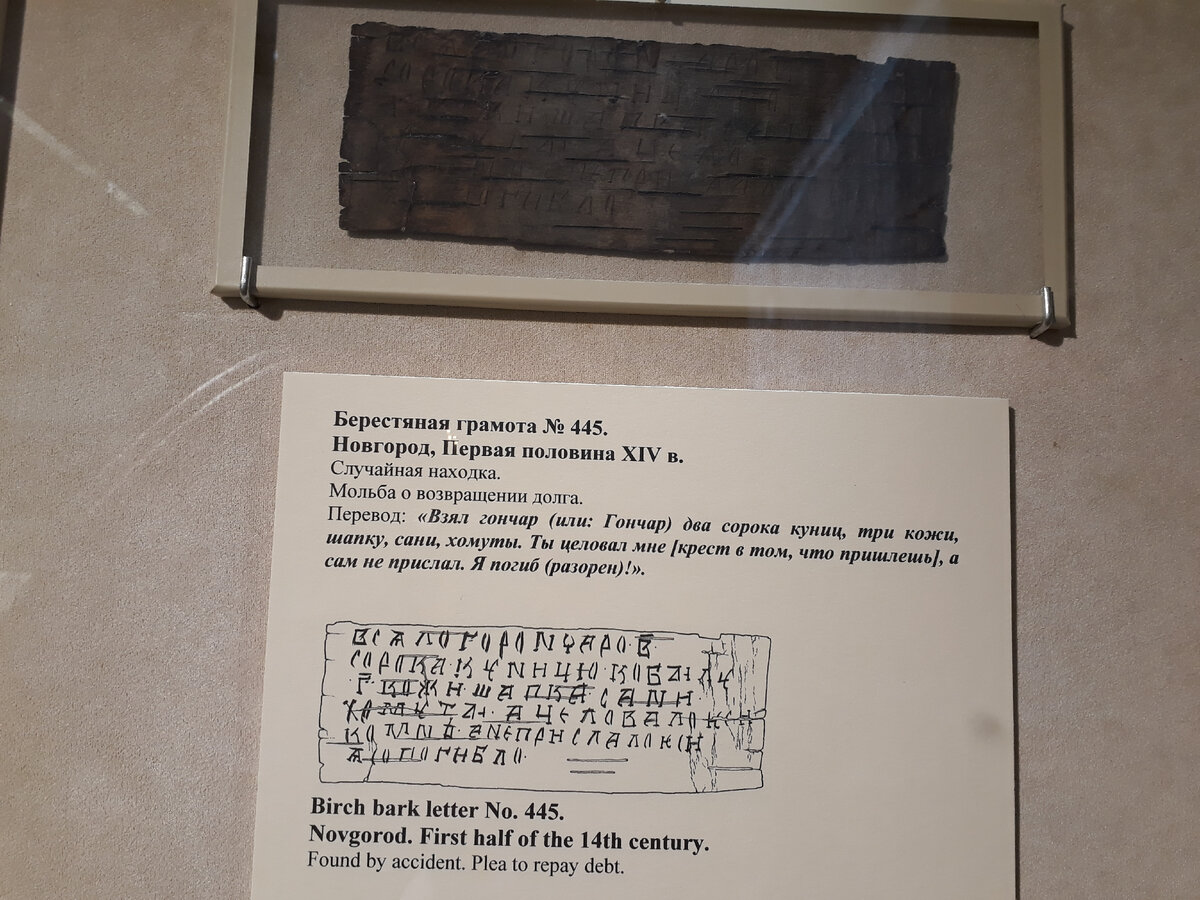 Берестяная грамота № 445.
Новгород, Первая половина XIV в.
Случайная находка.
Мольба о возвращении долга.
Перевод: «Взял гончар (или: Гончар) два сорока куниц, три кожи,
шапку, сани, хомуты. Ты целовал мне [крест в том, что пришлешь], а
сам не прислал. Я погиб (разорен)!».
ВСѦЛОГОРОNЧАРО·В҃·
СОРОКА·КЧNИЦЮ·
·Г҃·КОЖИ·ШАПКА·САNИ
АЦЕЛОВАЛОКСИ
КОМNѢ·АNЕПРИСЛАЛОКСИ
ѦСОПОГИБЛО·
Birch bark letter No. 445.
Novgorod. First half of the 14th century.
Found by accident. Plea to repay debt.